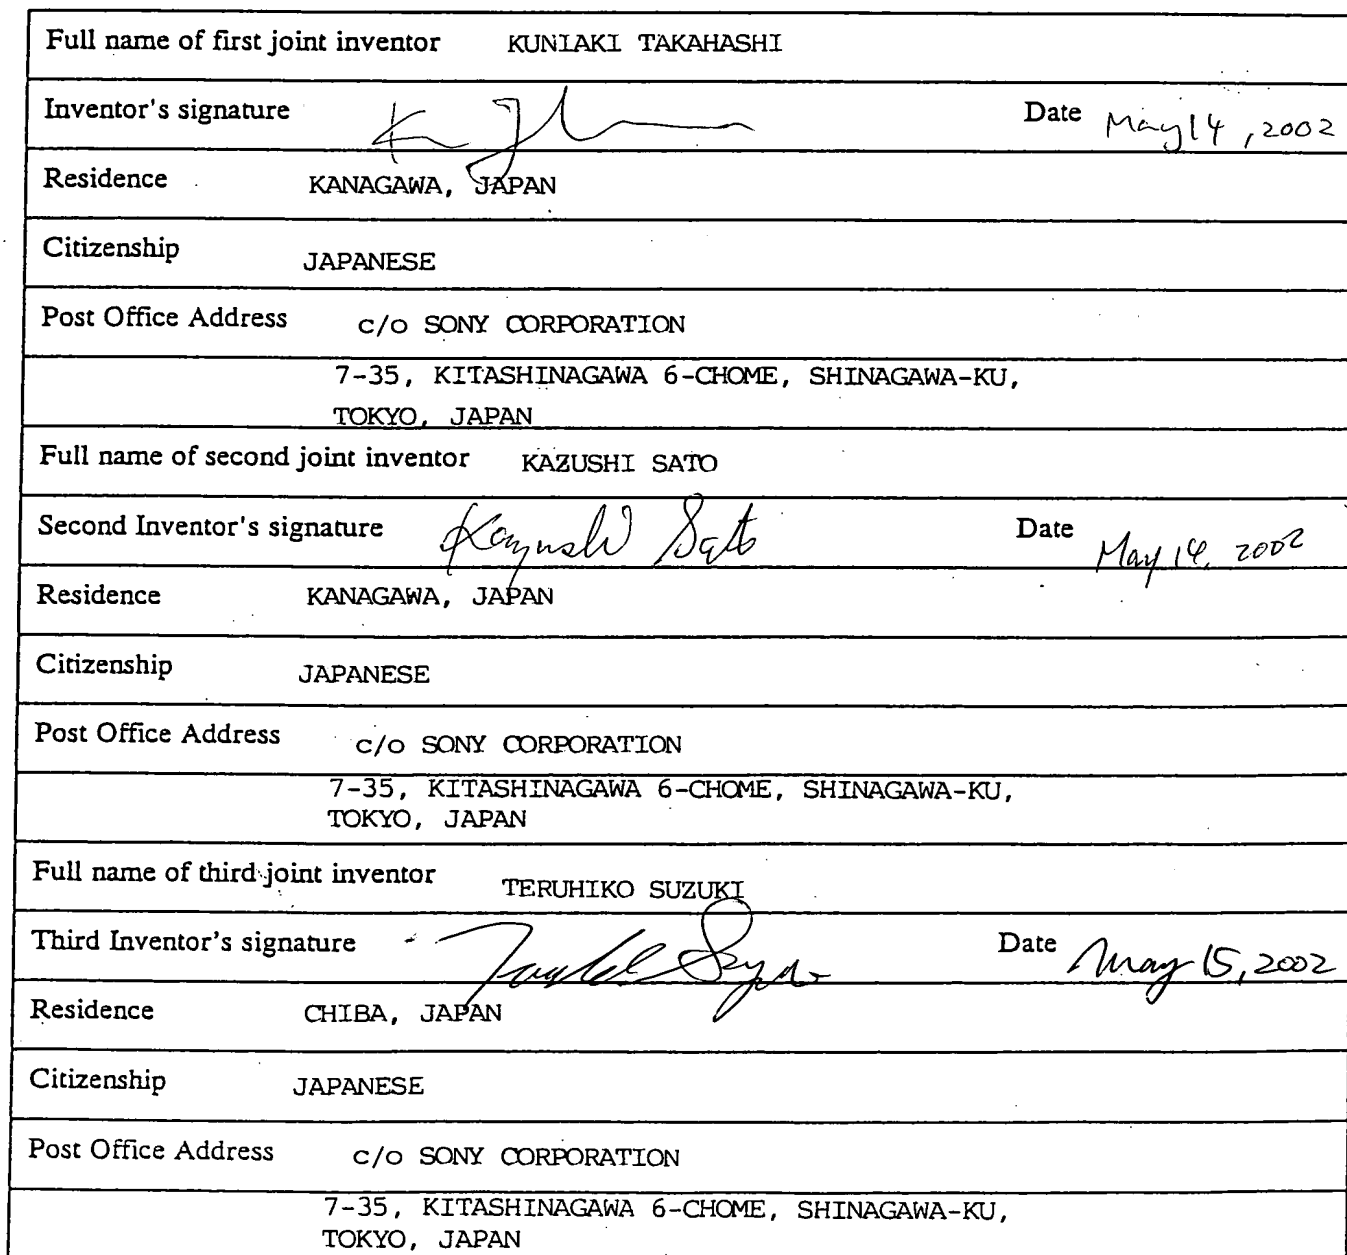 Full name of first joint inventor KUNIAKI TAKAHASHI
Inventor's signature Date May 14, 2002
Residence KANAGAWA, JAPAN
Citizenship JAPANESE
Post Office Address c/o SONY CORPORATION
7-35, KITASHINAGAWA 6-CHOME, SHINAGAWA-KU,
TOKYO, JAPAN
Full name of second joint inventor KAZUSHI SATO
Second Inventor's signature Kazushi Sato Date May 14, 2002
Residence KANAGAWA, JAPAN
Citizenship JAPANESE
Post Office Address c/o SONY CORPORATION
7-35, KITASHINAGAWA 6-CHOME, SHINAGAWA-KU,
TOKYO, JAPAN
Full name of third joint inventor TERUHIKO SUZUKI
Third Inventor's signature Date May 15, 2002
Residence CHIBA, JAPAN
Citizenship JAPANESE
Post Office Address c/o SONY CORPORATION
7-35, KITASHINAGAWA 6-CHOME, SHINAGAWA-KU,
TOKYO, JAPAN